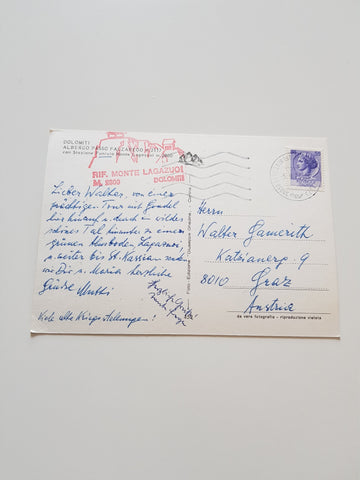 DOLOMITI
ALBERGO PASSO FALZAREGO m. 2117
con Stazione Funivia Monte Lagazuoi m. 2800
RIF. MONTE LAGAZUOI
M. 2800 DOLOMITI
Lieber Walter, von einer
prächtigen Tour mit Gondel
bis hinauf u. durch ein wildes
schönes Tal hinunter zu einem
grünen Almboden,
u. weiter bis St. Kassian senden
wir Dir u. Maria herzliche
Grüße Mutti
Viele alte Kriegsstellungen!
Herrn
Walter Gamerith
Katzianerg. 9
8010 Graz
Austria
da vera fotografia - riproduzione vietata